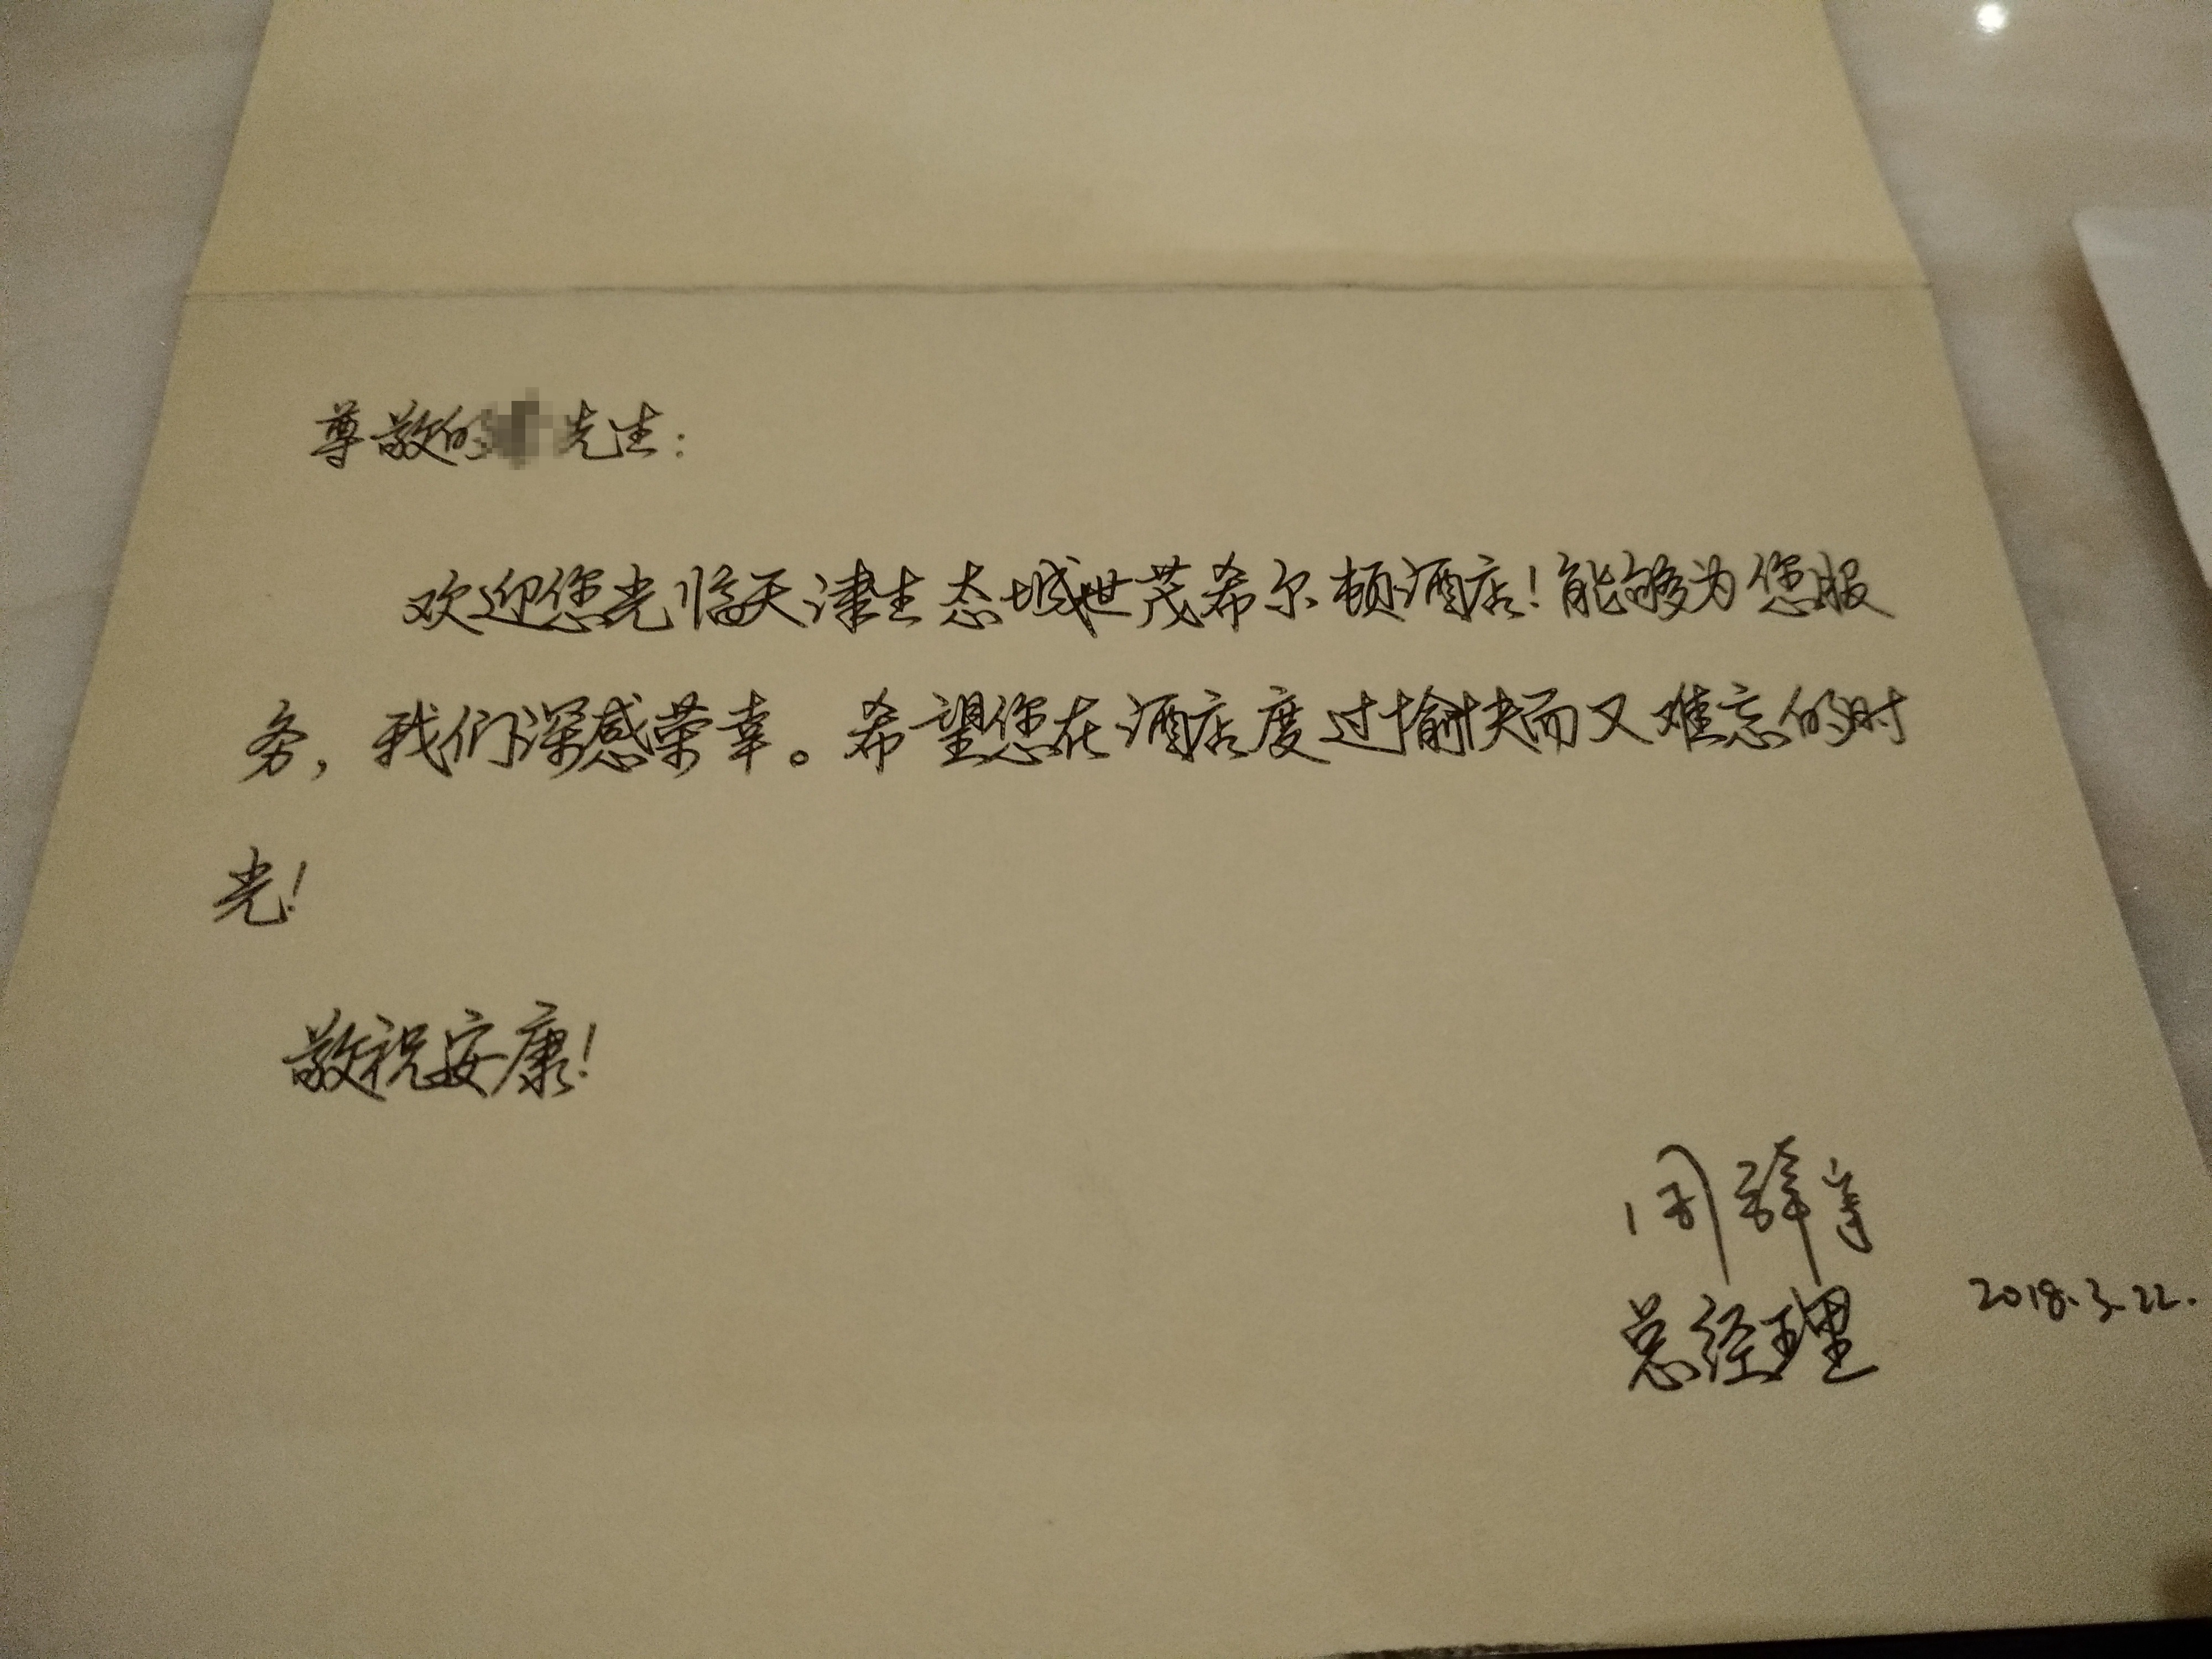 尊敬的 先生：
欢迎您光临天津生态城世茂希尔顿酒店！能够为您服
务，我们深感荣幸。希望您在酒店度过愉快而又难忘的时
光！
敬祝安康！
周
总经理
2018.3.22.